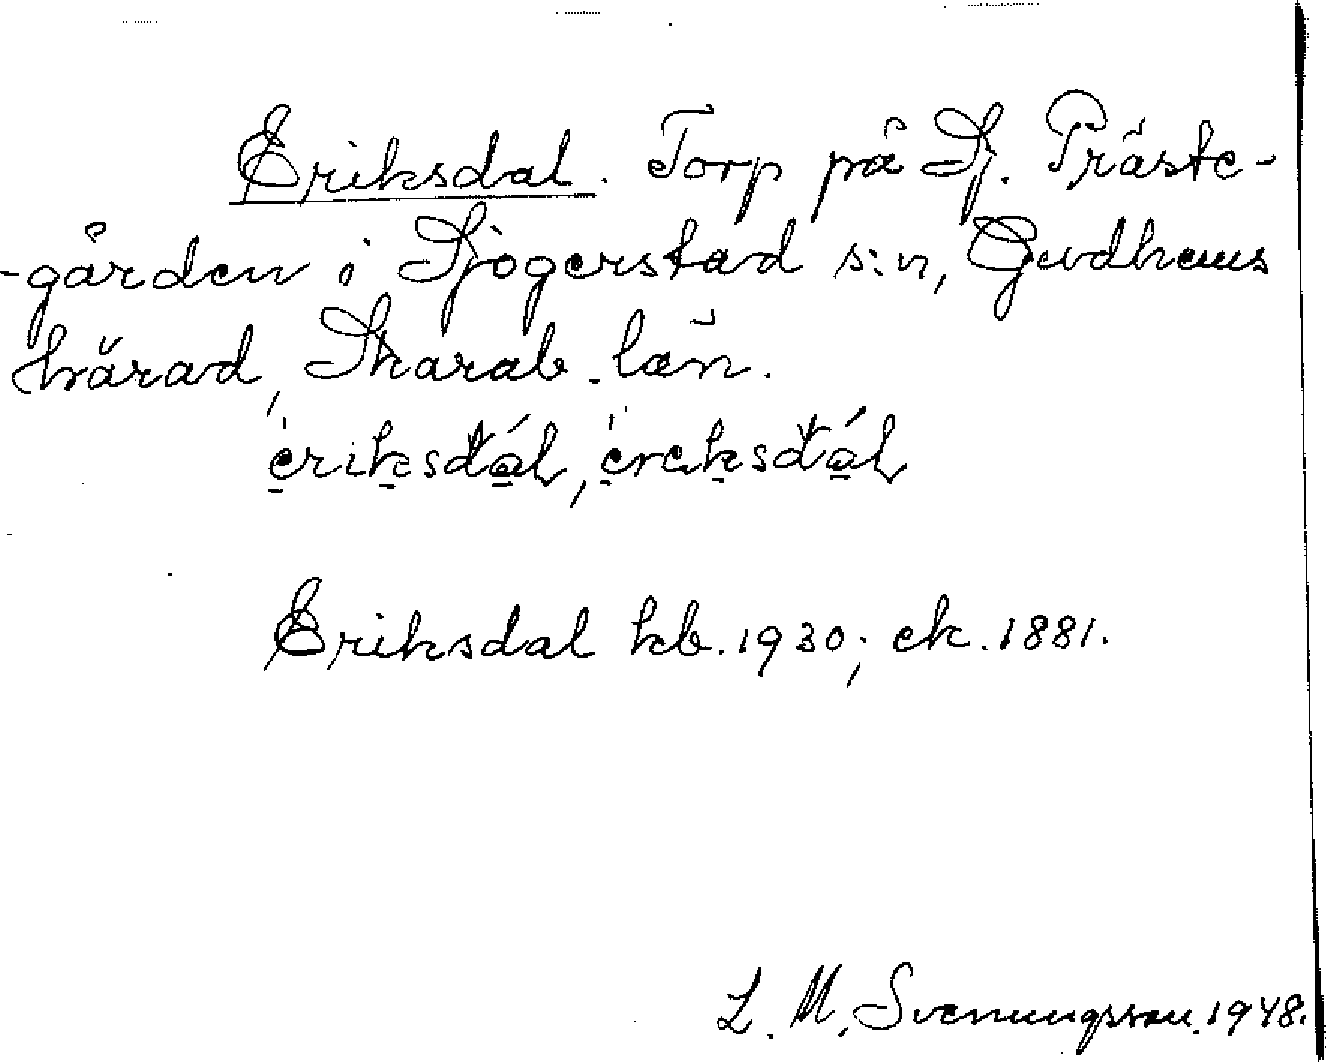 Eriksdal. Torp på Sj. Präste-
-gården i Sjögerstad s:n, Gudhems
härad, Skarab. län.
èriksdál, èreksdál
Eriksdal kb. 1930; ek. 1881.
L. M. Svenungsson 1948.